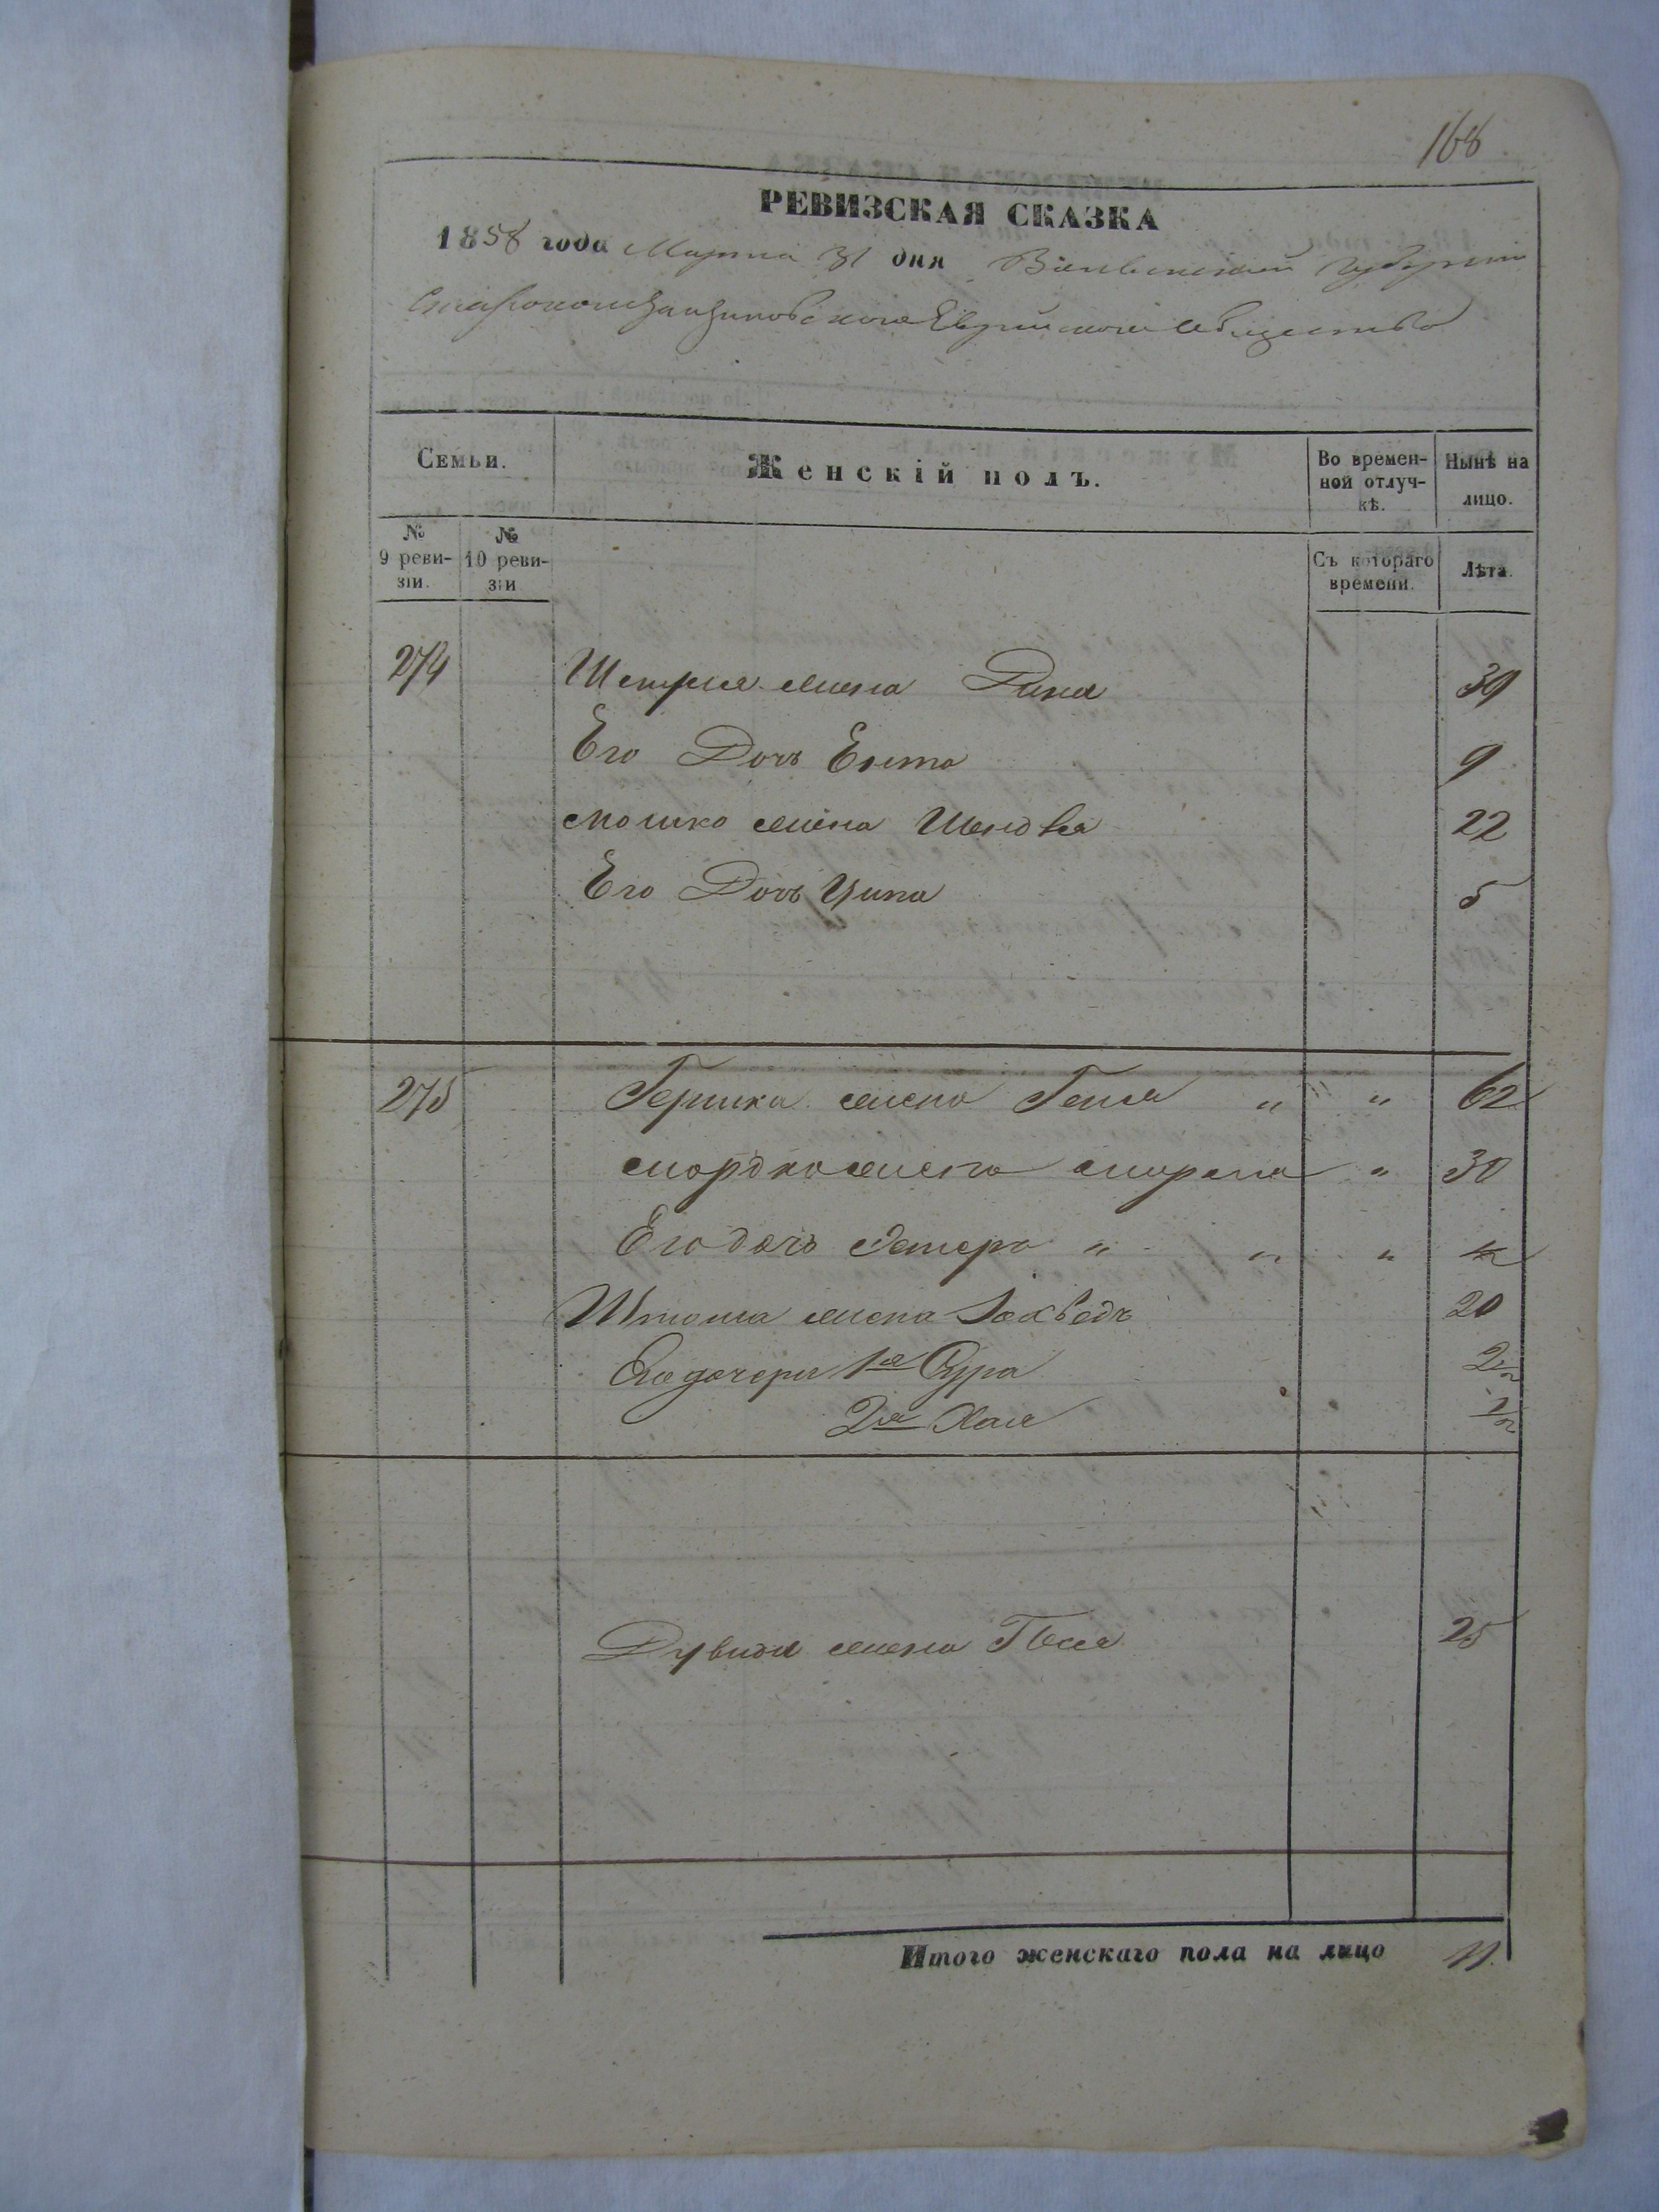 168
РЕВИЗСКАЯ СКАЗКА
1858 года Марта 31 дня Волынской губернии
Староконстантиновского Еврейского Общества
Семьи.
Женскій полъ.
Во времен-
ной отлуч-
кѣ.
Нынѣ на
лицо.
№
9 реви-
зіи.
№
10 реви-
зіи
Съ котораго
времени.
Лѣта.
274 жена Дина 39
Его Дочь Ента 9
Мошко жена Шендля 22
Его Дочь Ципа 5
275 Гершка жена Геня „ „ 62
Мордко жена „ 30
Его дочь Эстера „ „ „
жена Іохведъ 20
Его дочери 1я Сура 2
2я Хая
жена Песя 25
Итого женскаго пола на лицо 11.